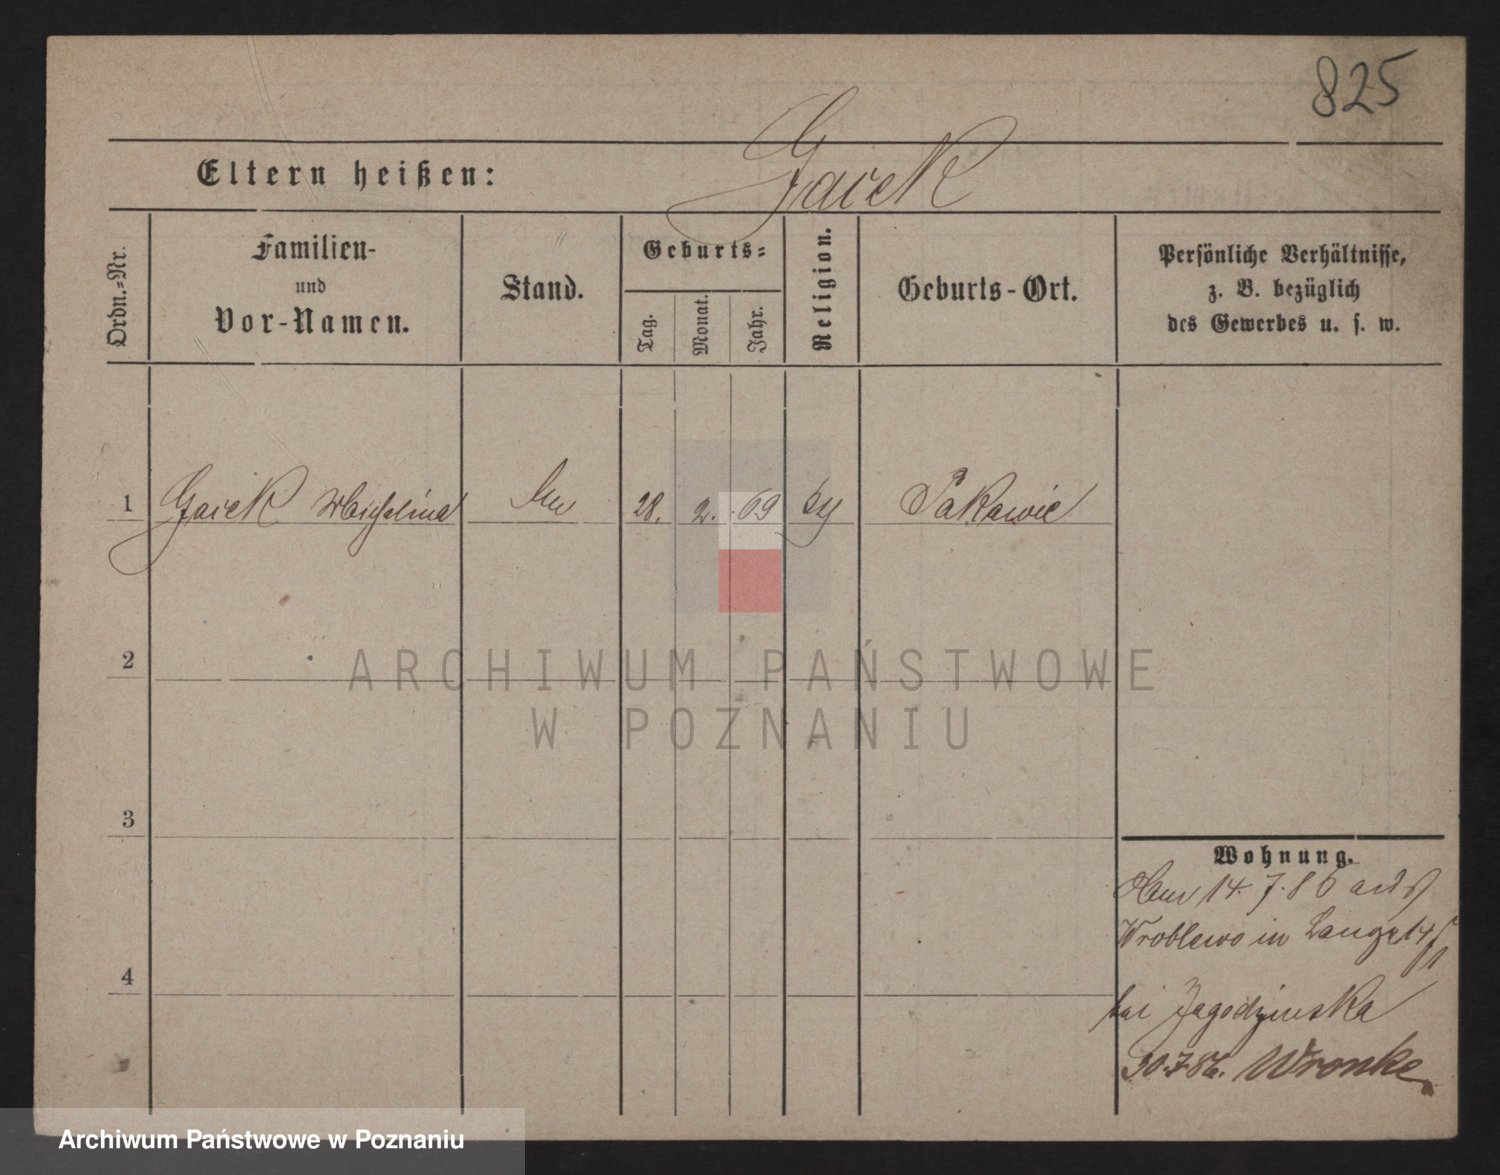 825
Eltern heißen: Gacek
Ordn.=Nr.
Familien-
und
Vor-Namen.
Stand.
Geburts=
Tag.
Monat.
Jahr.
Religion.
Geburts-Ort.
Persönliche Verhältnisse,
z. B. bezüglich
des Gewerbes u. s. w.
1 Gacek 28. 2. 69 Pakawie
2
3
4
ARCHIWUM PAŃSTWOWE
W POZNANIU
Wohnung.
14. 7. 86 aus
Wroblewo in Lange 14
bei Jagodzinska
30.7.86. Wronke
Archiwum Państwowe w Poznaniu